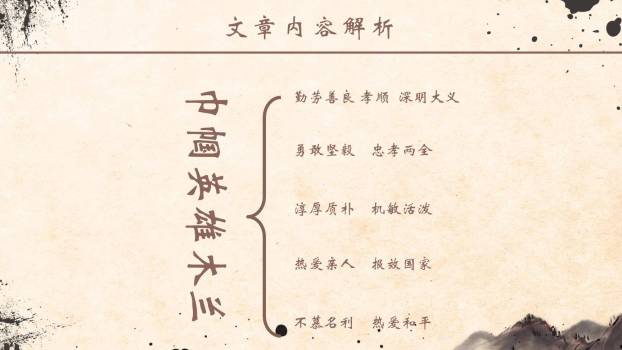 文章内容解析
巾帼英雄木兰
勤劳善良 孝顺 深明大义
勇敢坚毅 忠孝两全
淳厚质朴 机敏活泼
热爱亲人 报效国家
不慕名利 热爱和平